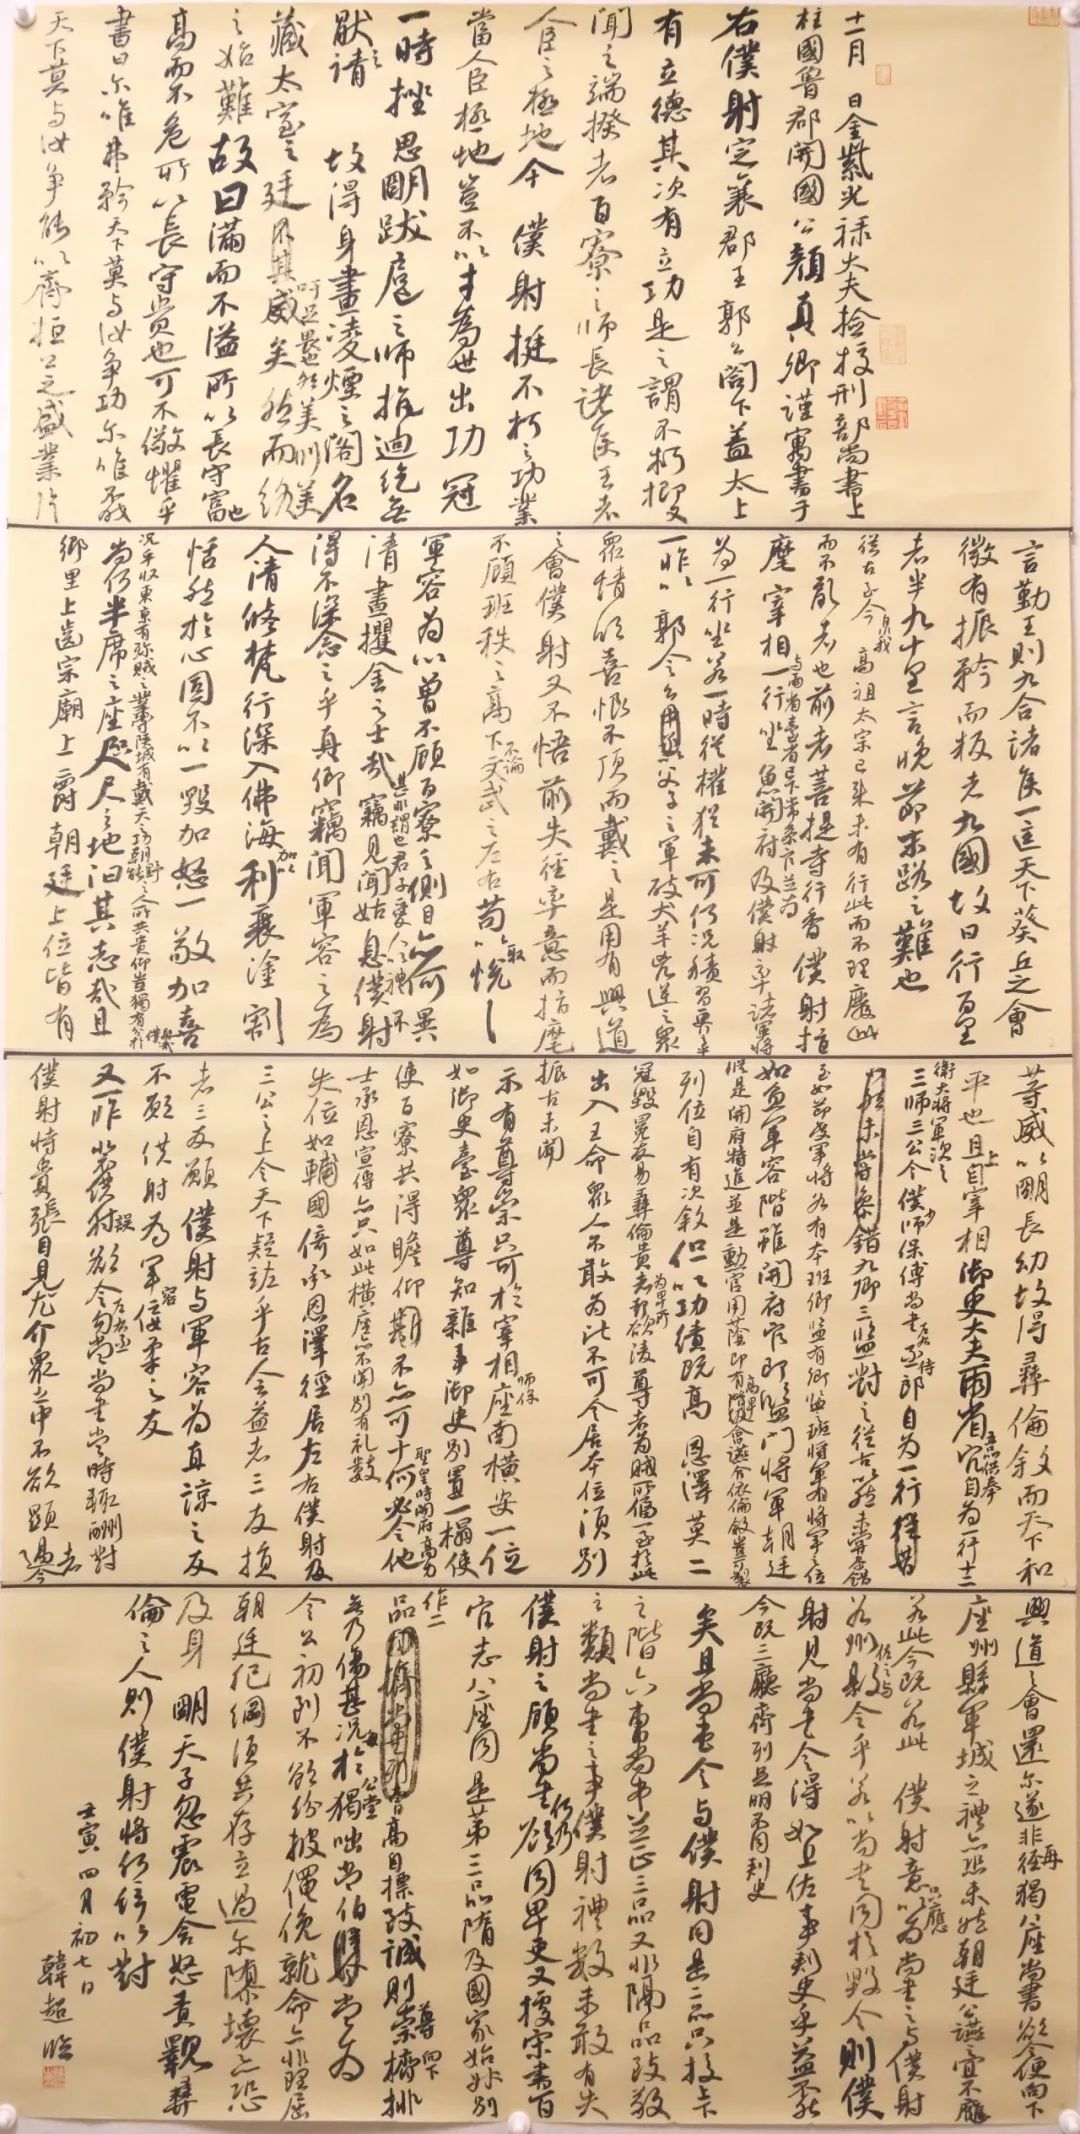 十一月　日金紫光禄大夫撿挍刑部尚書上
柱國魯郡開國公顏真卿謹寓書于
右僕射定襄郡王郭公閤下蓋太上
有立德其次有立功是之謂不朽抑又
聞之端揆者百寮之師長諸侯王者
人臣之極地今僕射挺不朽之功業
當人臣極地豈不以才為世出功冠
一時挫思明跋扈之師抗迴紇無
猒之請故得身畫凌煙之閣名
藏太室之廷吁足畏也然美則美矣然而終
之始難故曰滿而不溢所以長守富也
高而不危所以長守貴也可不儆懼乎
書曰尔唯弗矜天下莫与汝争功尔唯不伐
天下莫与汝争能以齊桓公之盛業片
言勤王則九合諸侯一匡天下葵丘之會
微有振矜而叛者九國故曰行百里
者半九十里言晚節末路之難也
從古至今自我高祖太宗已来未有行此而不理廢此
而不亂者也前者菩提寺行香僕射指
麾宰相与兩省臺省已下常条官並為
一行坐魚開府及僕射率諸軍將
為一行坐若一時從權猶未可何況積習更行乎
一昨以郭令公父子之軍破犬羊兇逆之眾
眾情欣喜恨不頂而戴之是用有興道
之會僕射又不悟前失徑率意而指麾
不顧班秩之高下不論文武之左右苟以取悅
軍容為心曾不顧百寮之側目亦何異
清晝攫金之士哉甚非謂也君子愛人以禮不竊見聞姑息僕射
得不深念之乎真卿竊聞軍容之為
人清修梵行深入佛海
恬然於心固不以一毀加怒一敬加喜
尚何半席之座咫尺之地汩其志哉且
鄉里上齒宗廟上爵朝廷上位皆有
等威以明長幼故得彝倫敘而天下和
平也且上自宰相御史大夫兩省五品供奉官自為一行十二
衛大將軍次之三師三公令僕少師保傅尚書左右丞侍郎自為一行
九卿三監對之從古以然未嘗參錯
至如節度軍將各有本班卿監有卿監之班將軍有將軍之位
如魚軍容階雖開府官即監門將軍朝廷
列位自有次敘但以功績既高恩澤莫二
出入王命眾人不敢為比不可令居本位須別
示有尊崇只可於宰相師保座南橫安一位
如御史臺眾尊知雜事御史別置一榻使
使百寮共得瞻仰不亦可乎何必令他
士承恩宣傳亦只如此橫座亦不聞別有礼數
失位如輔國倚承恩澤徑居左右僕射及
三公之上令天下疑怪乎古人云益者三友損
者三友願僕射与軍容為直諒之友
不願僕射為軍容佞柔之友
又一昨裴僕射誤欲令左右丞勾當尚書當時輒酬對
僕射恃貴張目見尤介眾之中不欲顯過今者
興道之會還尔遂非再徑獨八座尚書欲令便向下
座州縣軍城之禮亦恐未然朝廷公讌之宜不應
若此今既若此僕射意只應以為尚書之与僕射
若州佐之与縣令乎若以尚書同於縣令則僕
射見尚書令得如上佐事刺史乎益不然
今既三廳齊列足明不同刺史
矣且尚書令与僕射同是二品只挍上下
之階六曹尚書並正三品又非隔品致敬
之類尚書之事僕射禮數未敢有失
僕射之顧尚書何乃欲同卑吏又據宋書百
官志八座同是第三品隋及國家始升別
作二品高自標致誠則尊崇向下擠排
無乃傷甚況再於公堂獨咄常伯當為
令公初到不欲紛披僶俛就命亦非理屈
朝廷紀綱須共存立過尔隳壞亦恐
及身明天子忽震電含怒責斁彝
倫之人則僕射將何辭以對
壬寅四月初七日
韓超臨